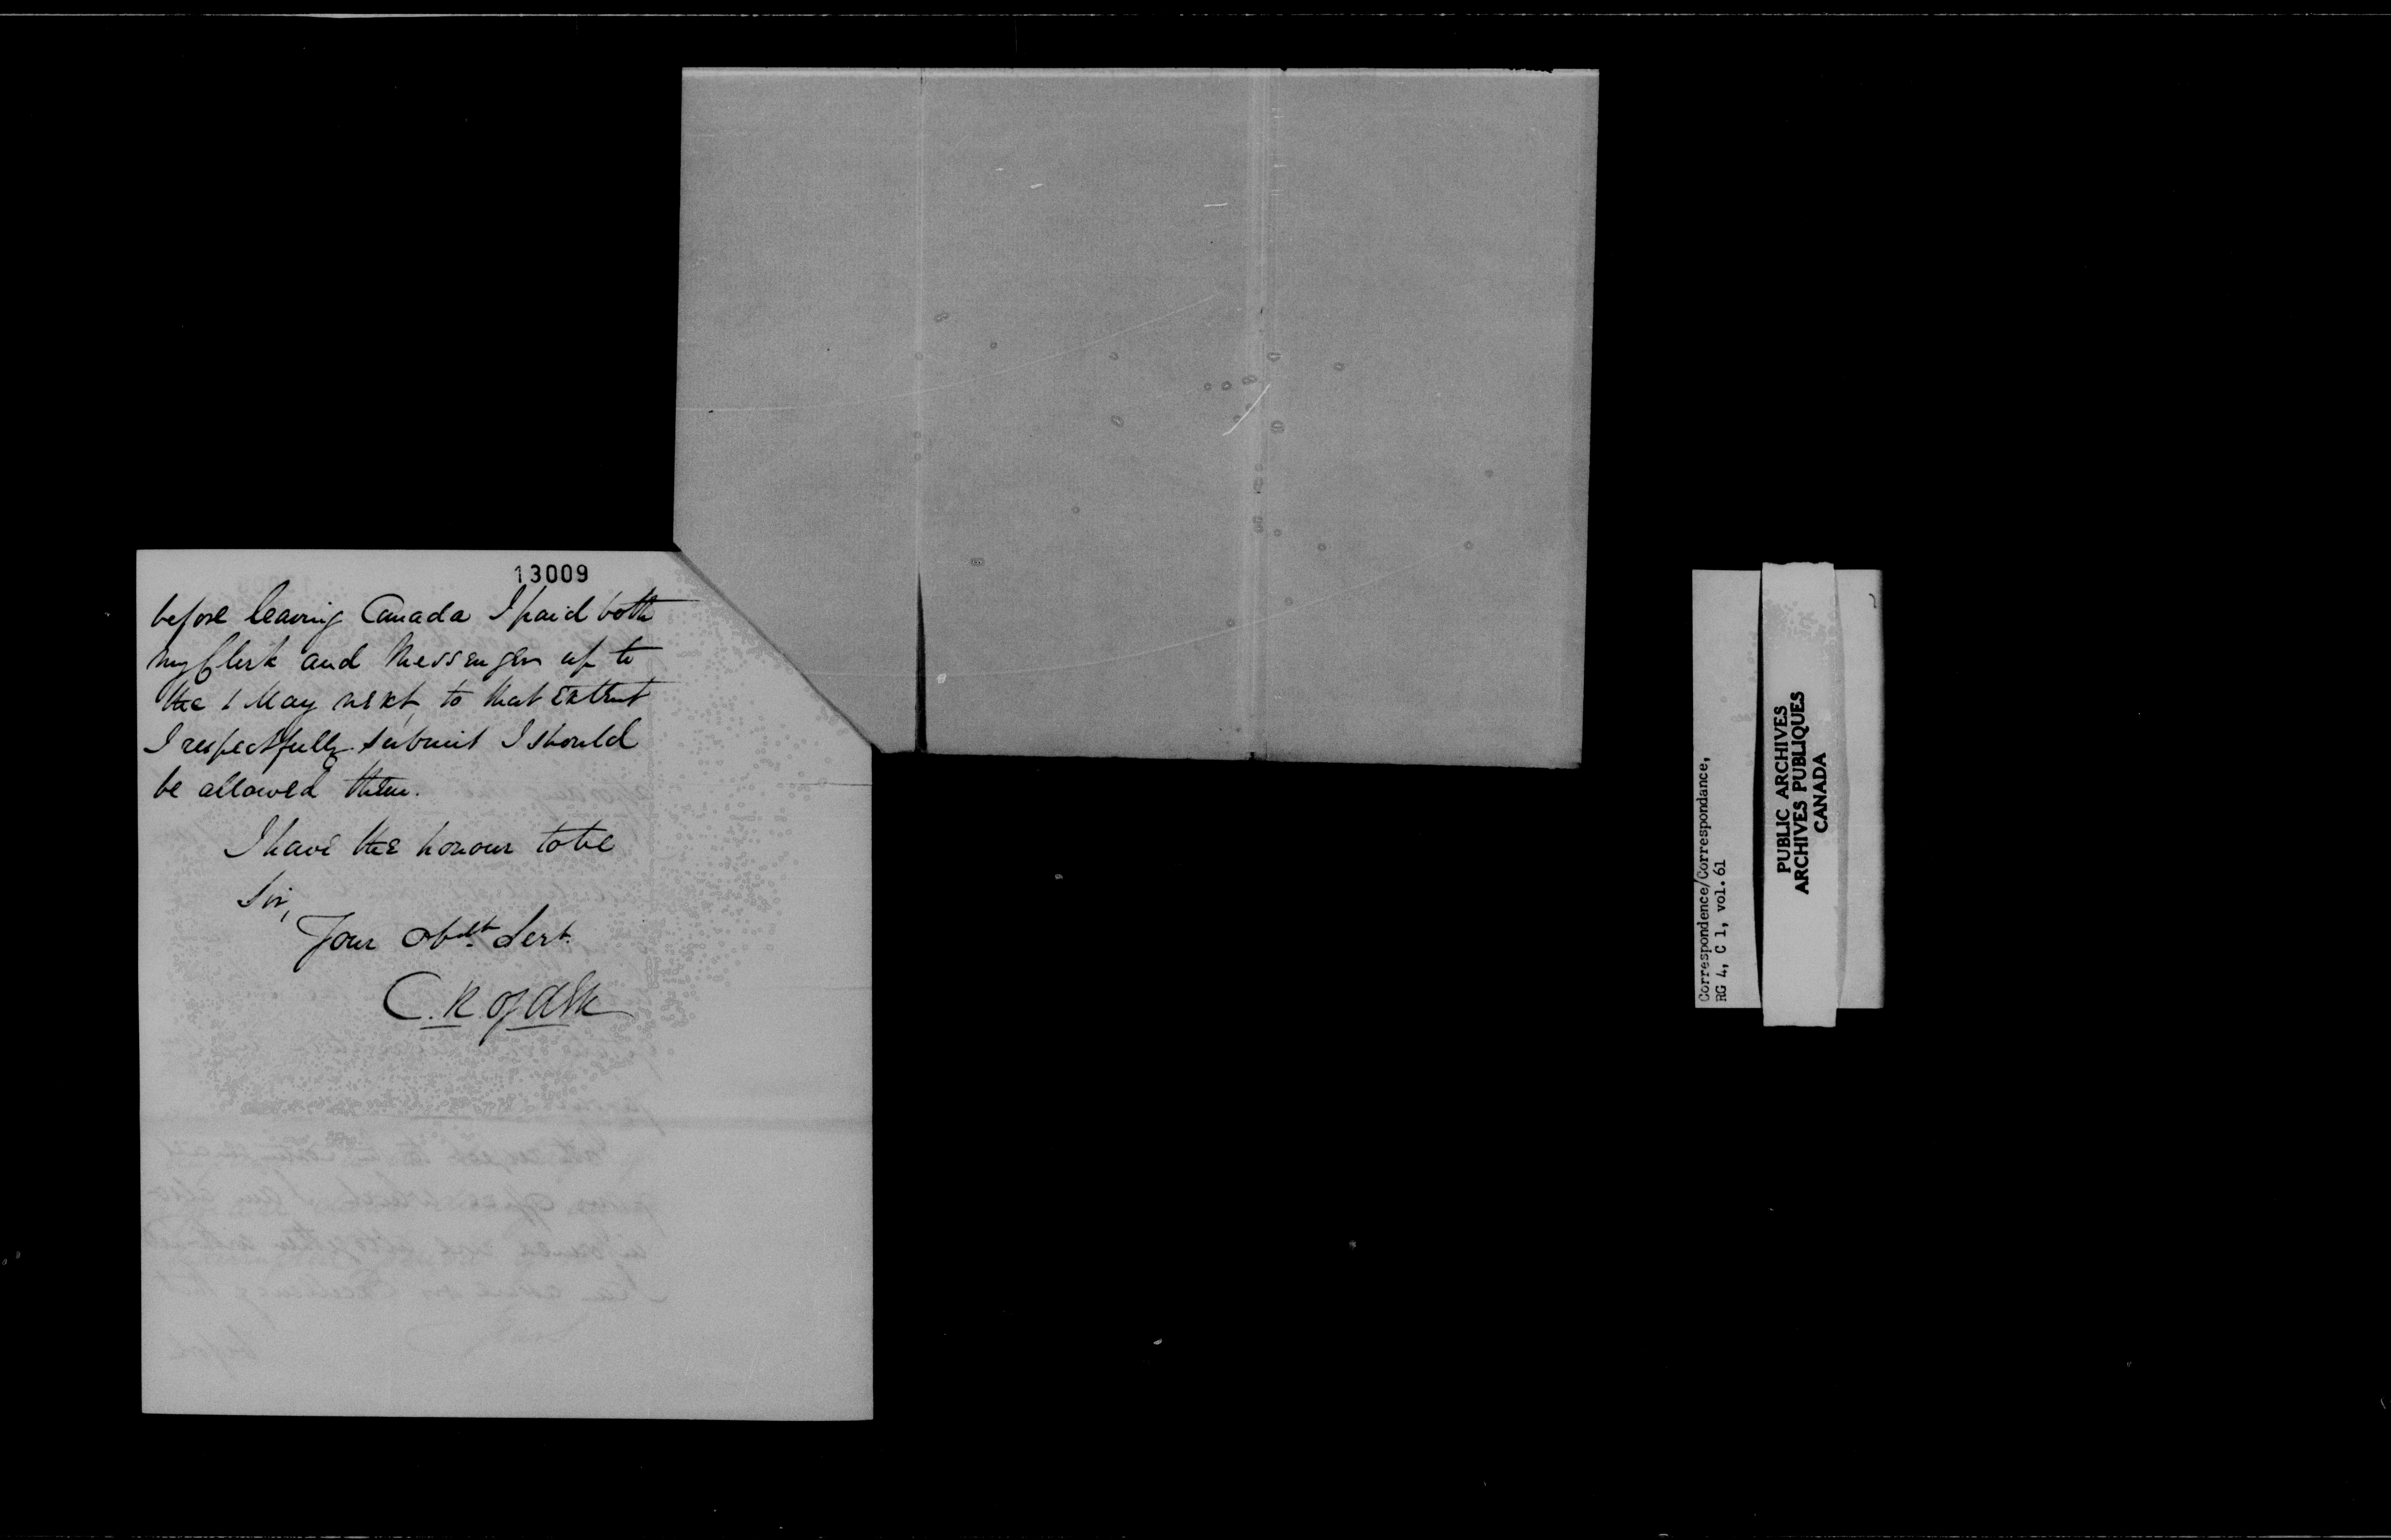 13009
before leaving Canada I paid both
my Clerk and Messenger up to
the 1 May next, to that extent
I respectfully submit I should
be allowed them.
I have the honour to be
Sir,
Your Obdt. Servt.
C. R. Ogden
Correspondence/Correspondance,
RG 4, C 1, vol. 61
PUBLIC ARCHIVES
ARCHIVES PUBLIQUES
CANADA